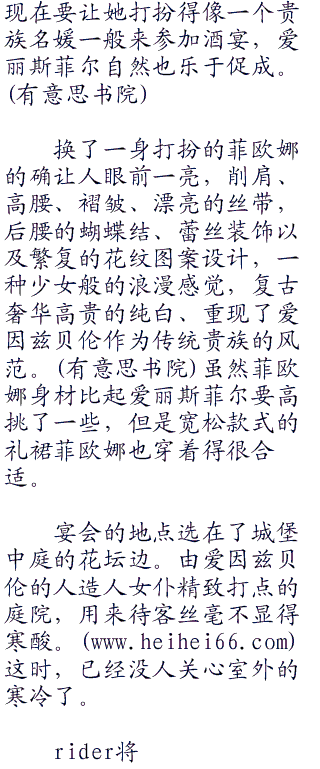 现在要让她打扮得像一个贵
族名媛一般来参加酒宴，爱
丽斯菲尔自然也乐于促成。
(有意思书院)
换了一身打扮的菲欧娜
的确让人眼前一亮，削肩、
高腰、褶皱、漂亮的丝带，
后腰的蝴蝶结、蕾丝装饰以
及繁复的花纹图案设计，一
种少女般的浪漫感觉，复古
奢华高贵的纯白、重现了爱
因兹贝伦作为传统贵族的风
范。(有意思书院)虽然菲欧
娜身材比起爱丽斯菲尔要高
挑了一些，但是宽松款式的
礼裙菲欧娜也穿着得很合
适。
宴会的地点选在了城堡
中庭的花坛边。由爱因兹贝
伦的人造人女仆精致打点的
庭院，用来待客丝毫不显得
寒酸。(www.heihei66.com)
这时，已经没人关心室外的
寒冷了。
rider将